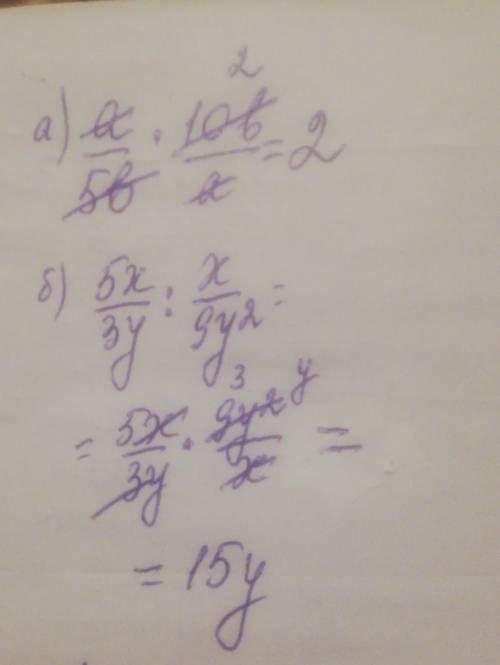 2
а) a/5b · 10b/a = 2
б) 5x/3y : x/9y² =
3 y
= 5x/3y · 9y²/x =
= 15y